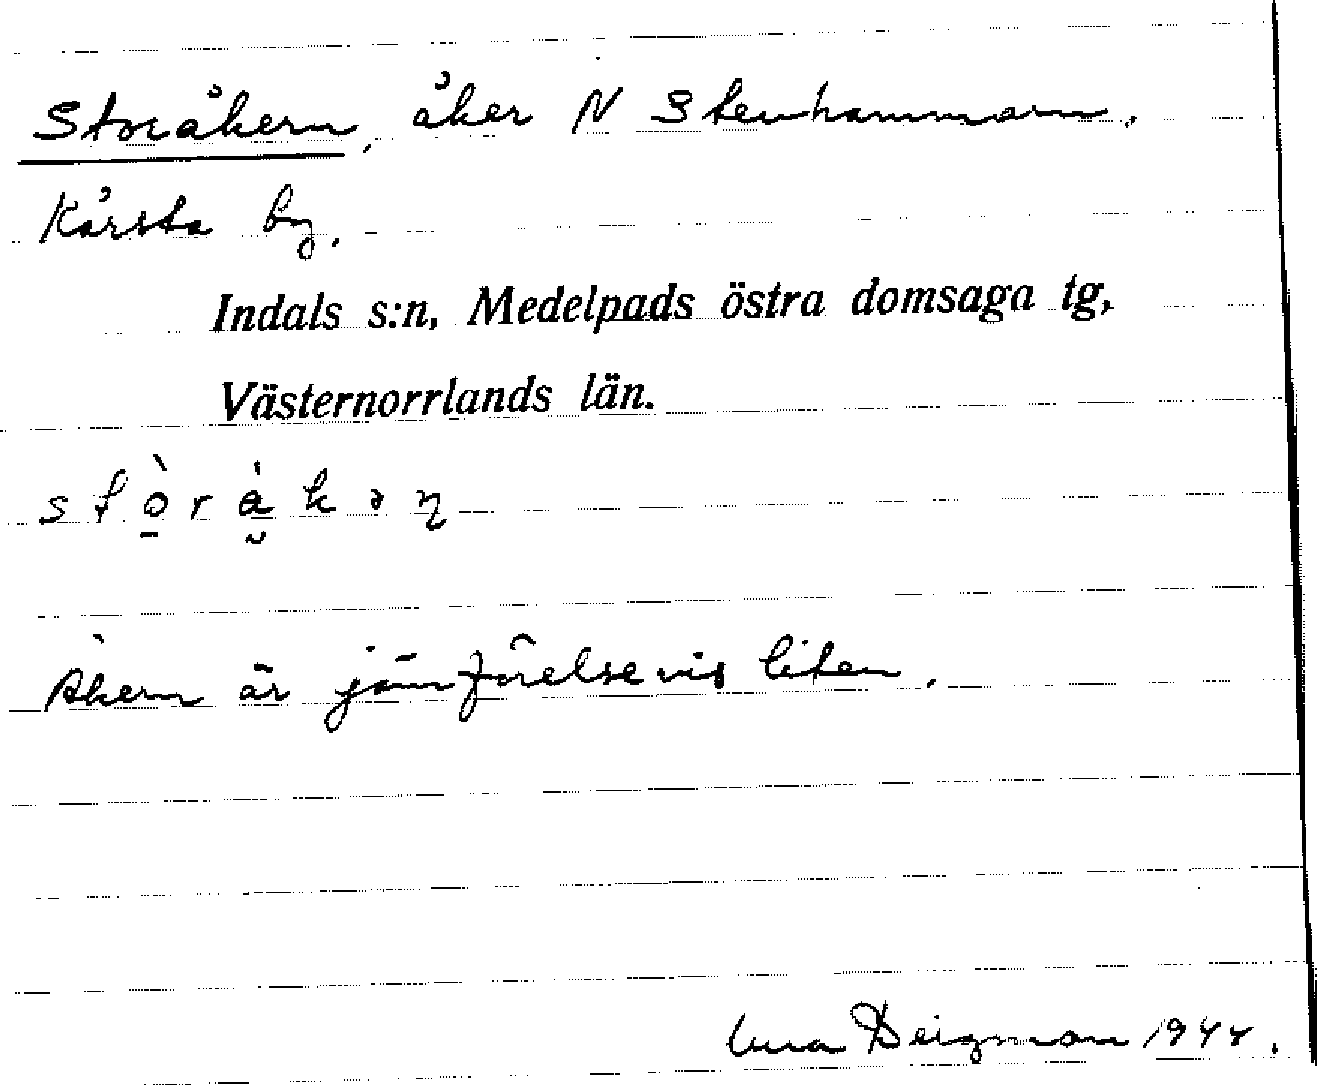 Storåkern, åker N Stenhammarn.
Kårsta by.
Indals s:n, Medelpads östra domsaga tg,
Västernorrlands län.
Åkern är jämförelsevis liten.
Deigman 1944.